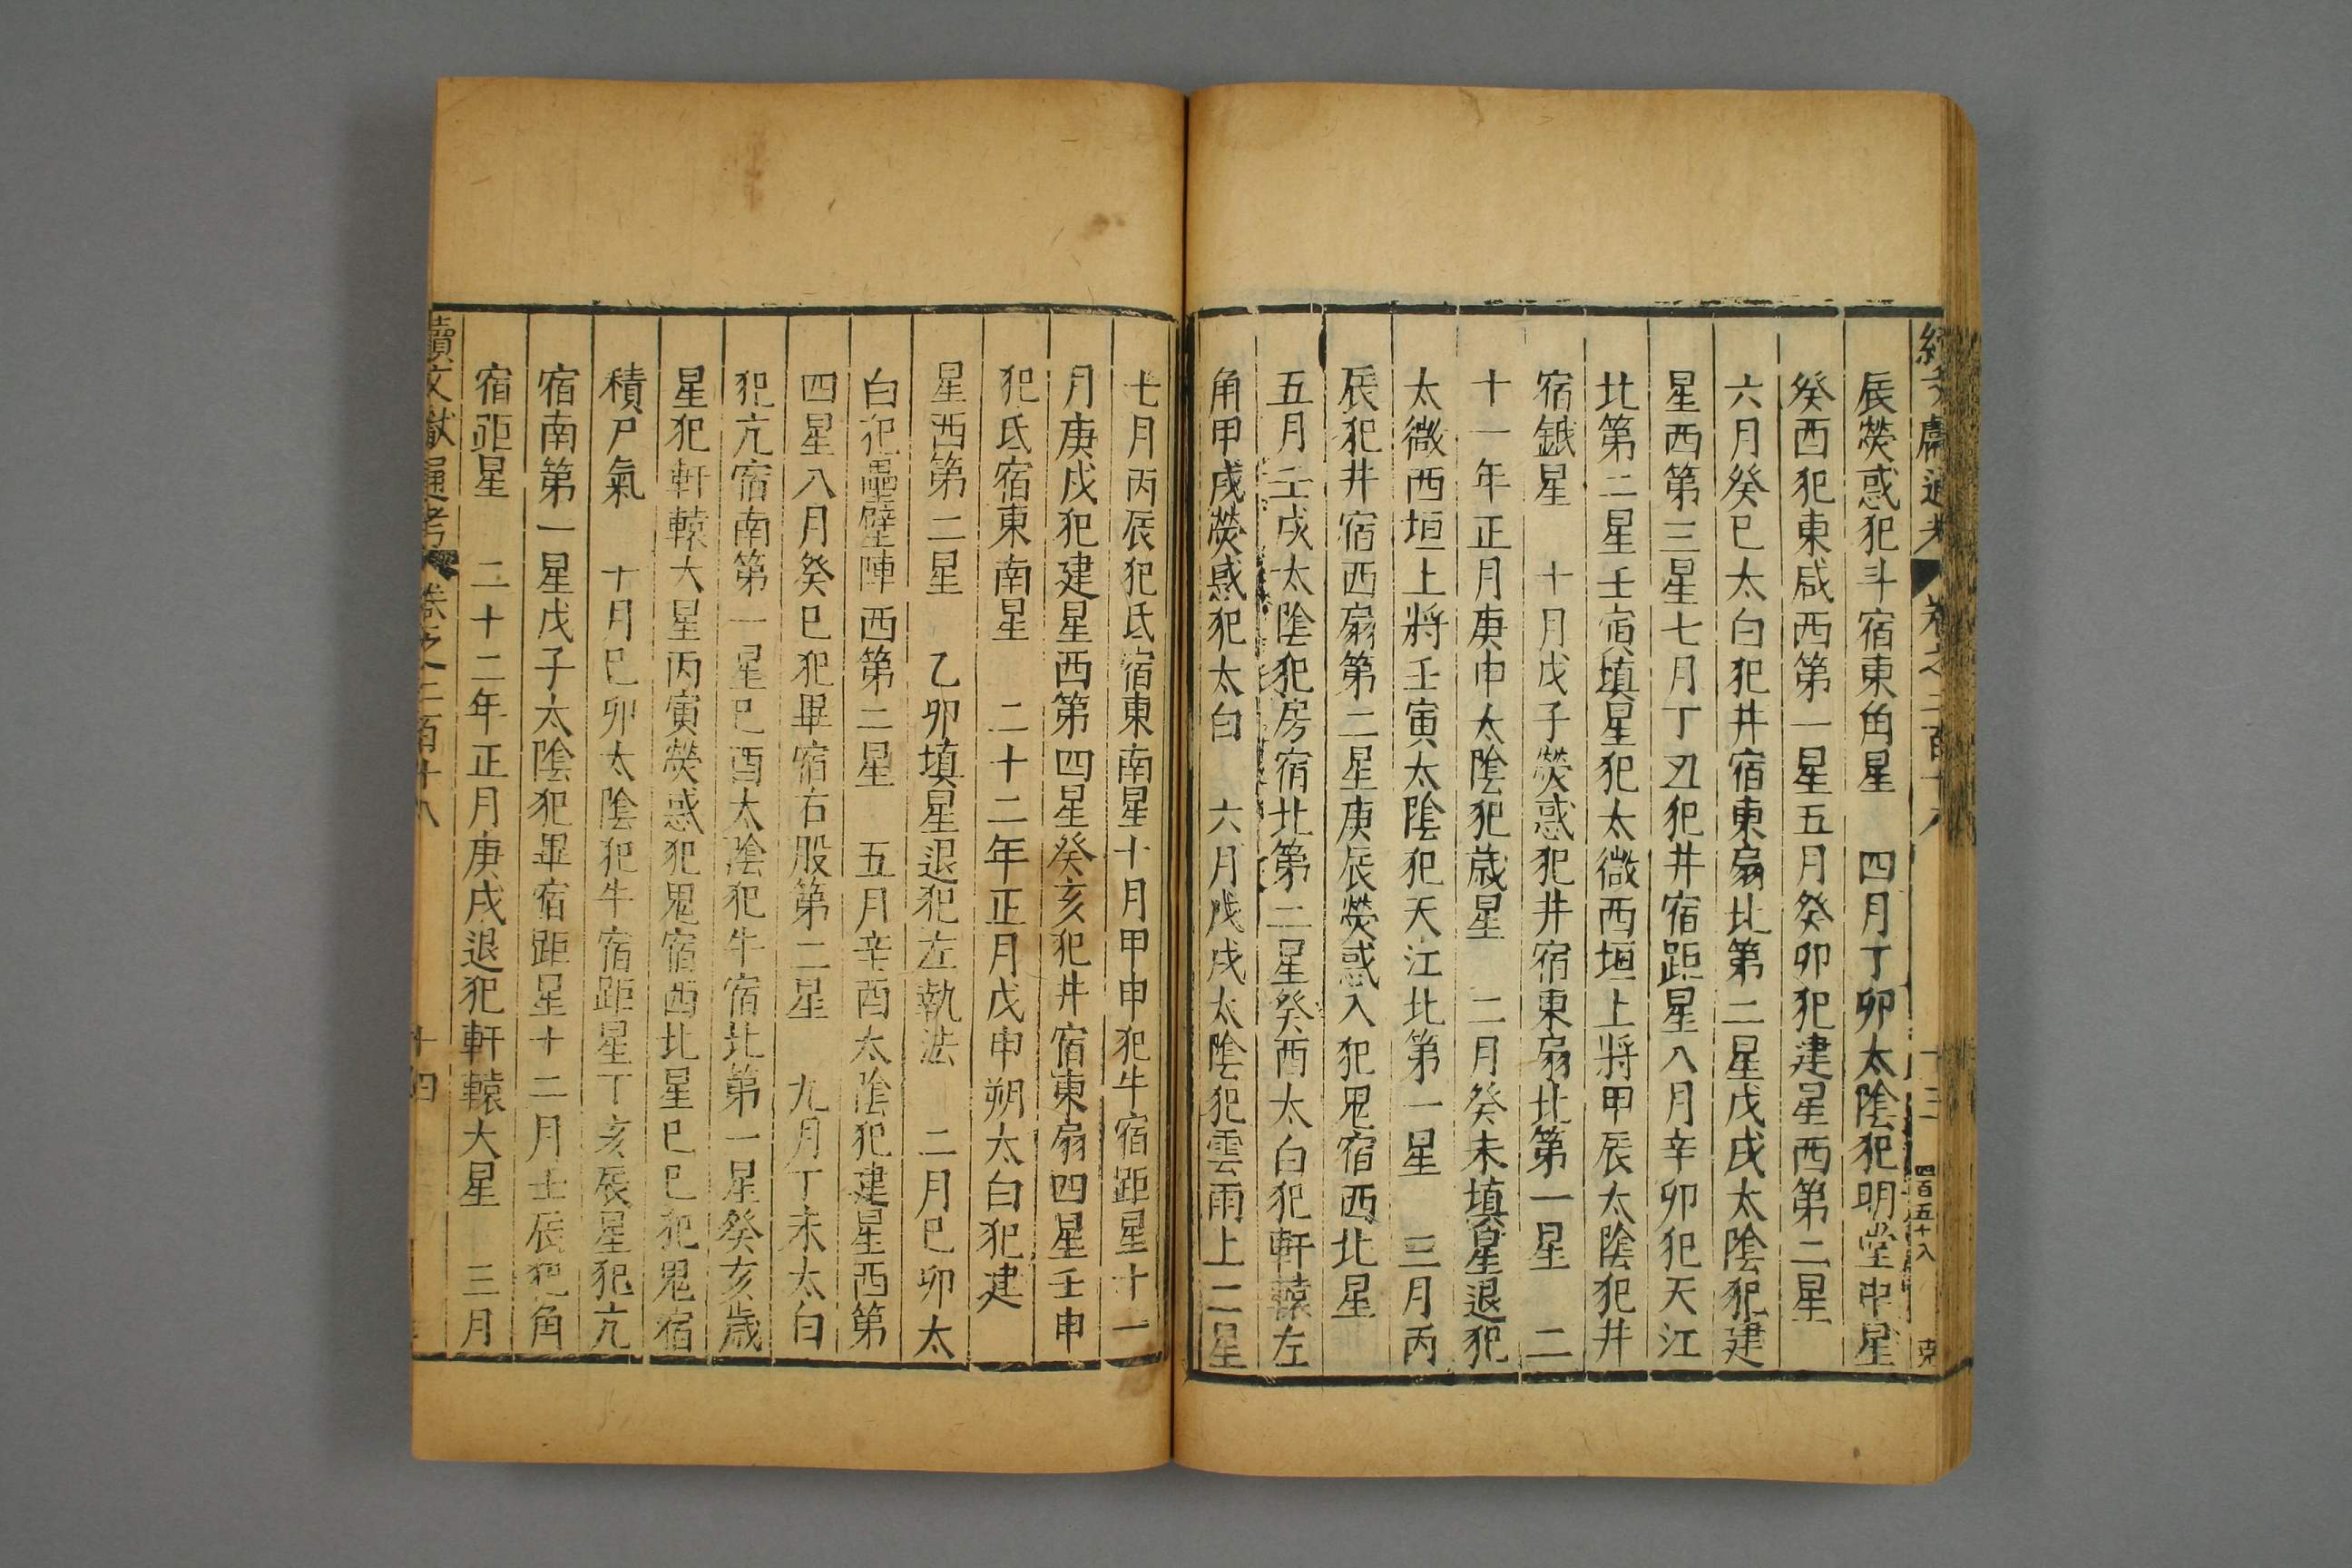 續文獻通考 卷之二百十八 十三 四百五十八 克
辰熒惑犯斗宿東角星 四月丁卯太陰犯明堂中星
癸酉犯東咸西第一星五月癸卯犯建星西第二星
六月癸巳太白犯井宿東扇北第二星戊戌太陰犯建
星西第三星七月丁丑犯井宿距星八月辛卯犯天江
北第二星壬寅填星犯太微西垣上將甲辰太陰犯井
宿鉞星 十月戊子熒惑犯井宿東扇北第一星 二
十一年正月庚申太陰犯歲星 二月癸未填星退犯
太微西垣上將壬寅太陰犯天江北第一星 三月丙
辰犯井宿西扇第二星庚辰熒惑入犯鬼宿西北星
五月壬戌太陰犯房宿北第二星癸酉太白犯軒轅左
角甲戌熒惑犯太白 六月戊戌太陰犯雲雨上二星
七月丙辰犯氐宿東南星十月甲申犯牛宿距星十一
月庚戌犯建星西第四星癸亥犯井宿東扇四星壬申
犯氐宿東南星 二十二年正月戊申朔太白犯建
星西第二星 乙卯填星退犯左執法 二月巳卯太
白犯壘壁陣西第二星 五月辛酉太陰犯建星西第
四星八月癸巳犯畢宿右股第二星 九月丁未太白
犯亢宿南第一星巳酉太陰犯牛宿北第一星癸亥歲
星犯軒轅大星丙寅熒惑犯鬼宿西北星巳巳犯鬼宿
積尸氣 十月巳卯太陰犯牛宿距星丁亥辰星犯亢
宿南第一星戊子太陰犯畢宿距星十二月壬辰犯角
宿距星 二十二年正月庚戌退犯軒轅大星 三月
續文獻通考 卷之二百十八 十四